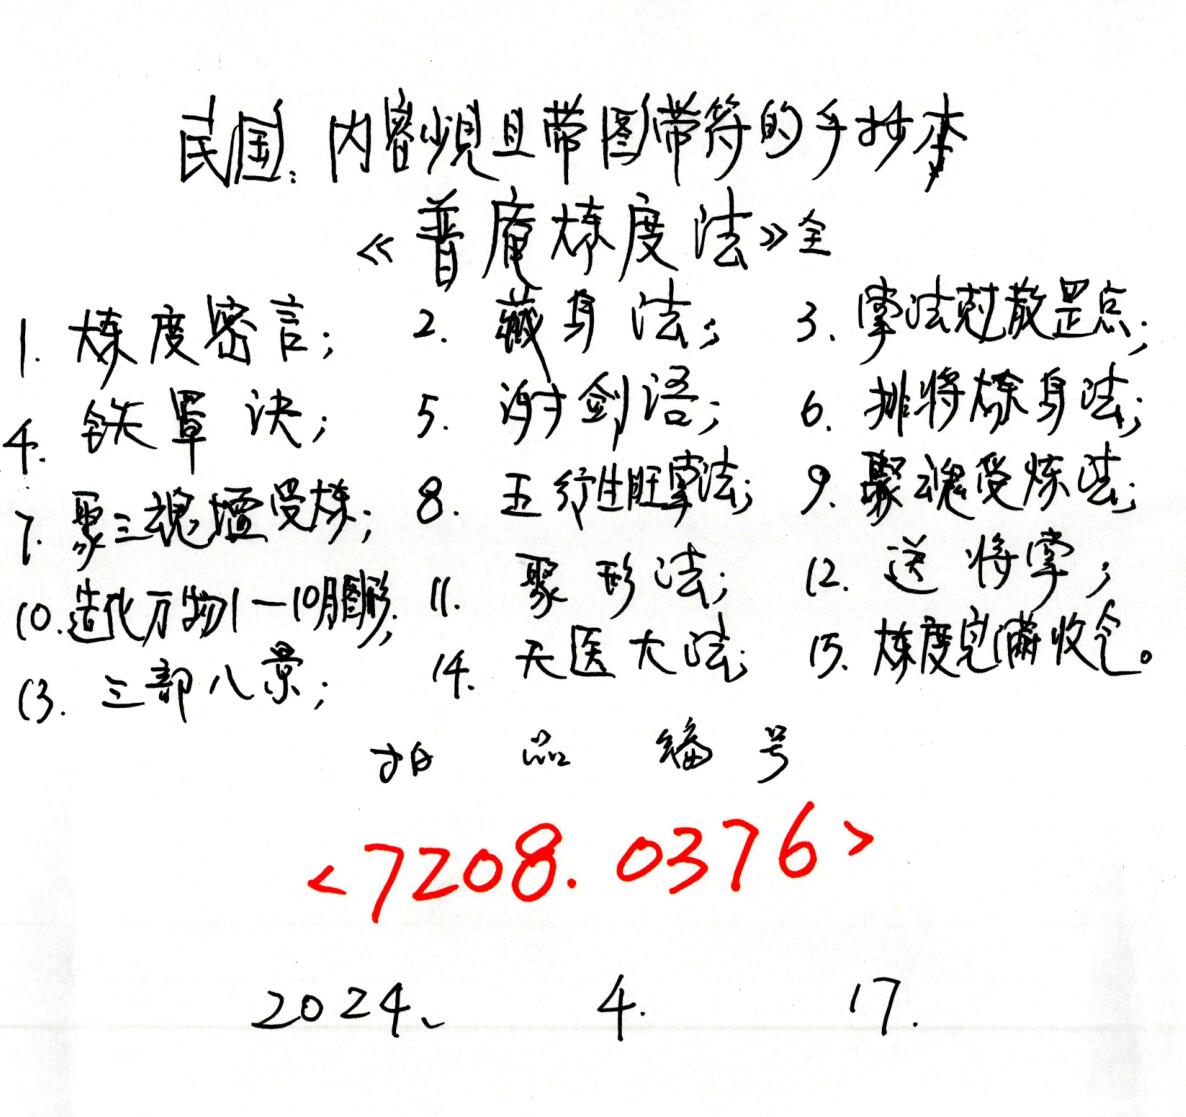 民国：内容少见且带图带符的手抄本
《普庵炼度法》全
1. 炼度密言； 2. 藏身法； 3. 掌法赳散罡点；
4. 铁罩决； 5. 谢剑语； 6. 排将炼身法；
7. 聚三魂坛受炼； 8. 五行生旺掌法； 9. 聚魂受炼法；
10. 造化万物1—10月图形； 11. 聚形法； 12. 送将掌；
13. 三部八景； 14. 天医大法； 15. 炼度完满收仓。
拍品编号
<7208.0376>
2024、 4. 17.